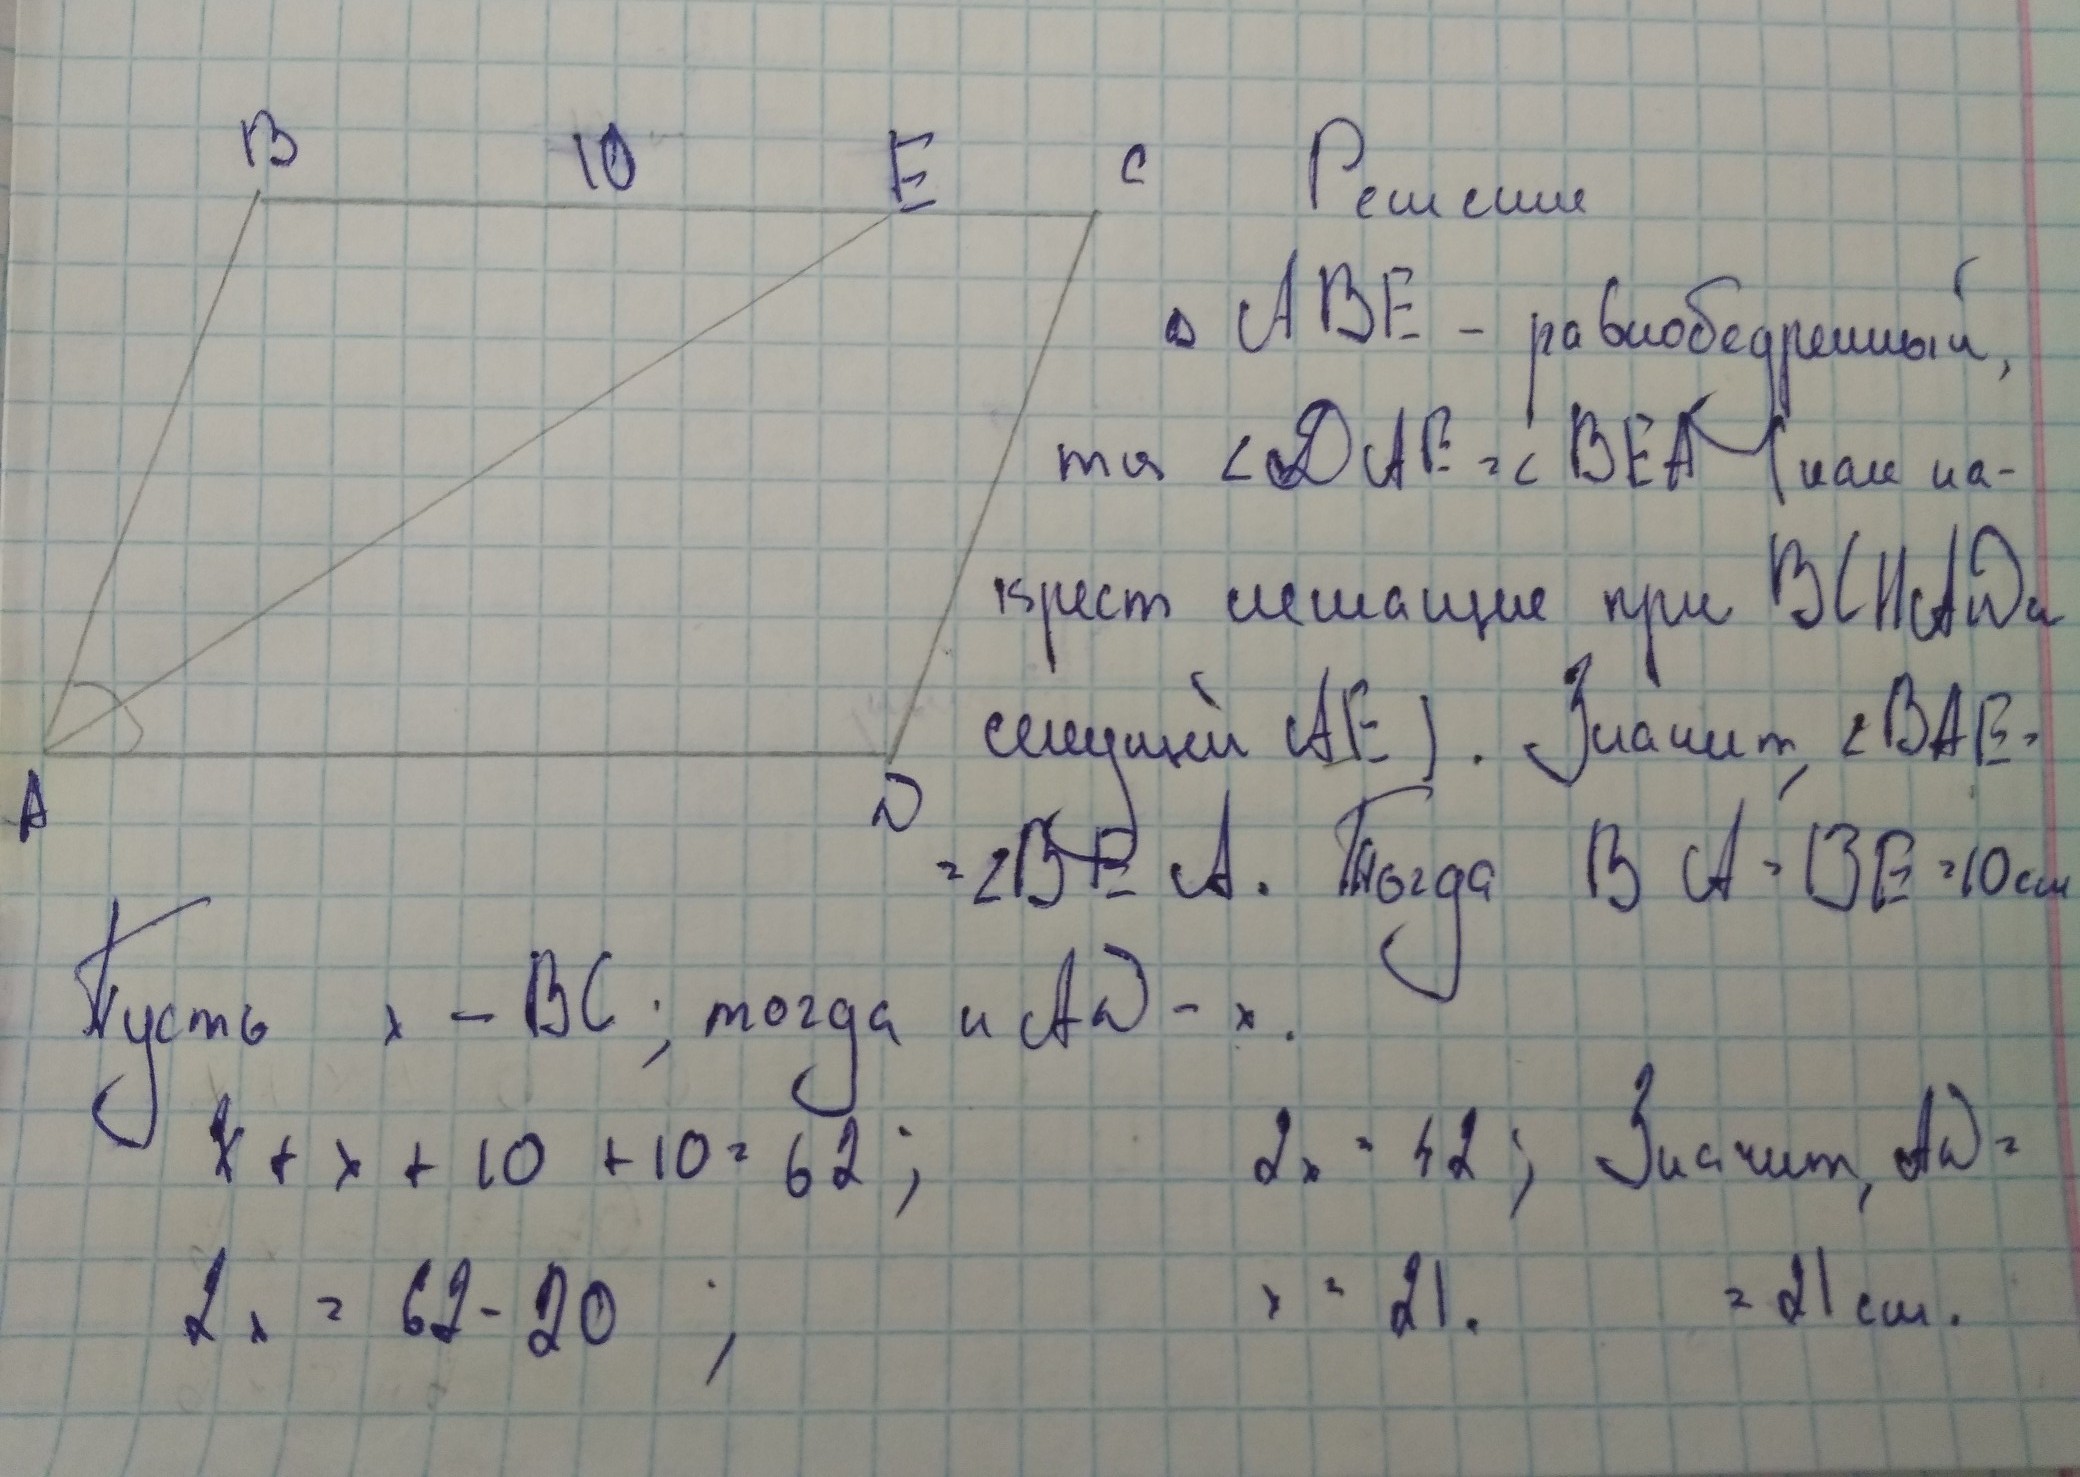 B 10 E C
Решение
△ ABE - равнобедренный,
тк ∠DAE = ∠BEA (как на-
крест лежащие при BC||AD и
секущей AE). Значит, ∠BAE =
A D
= ∠BEA. Тогда BA = BE = 10 см
Пусть x - BC; тогда и AD - x.
x + x + 10 + 10 = 62;
2x = 62 - 20;
2x = 42; Значит, AD =
x = 21. = 21 см.